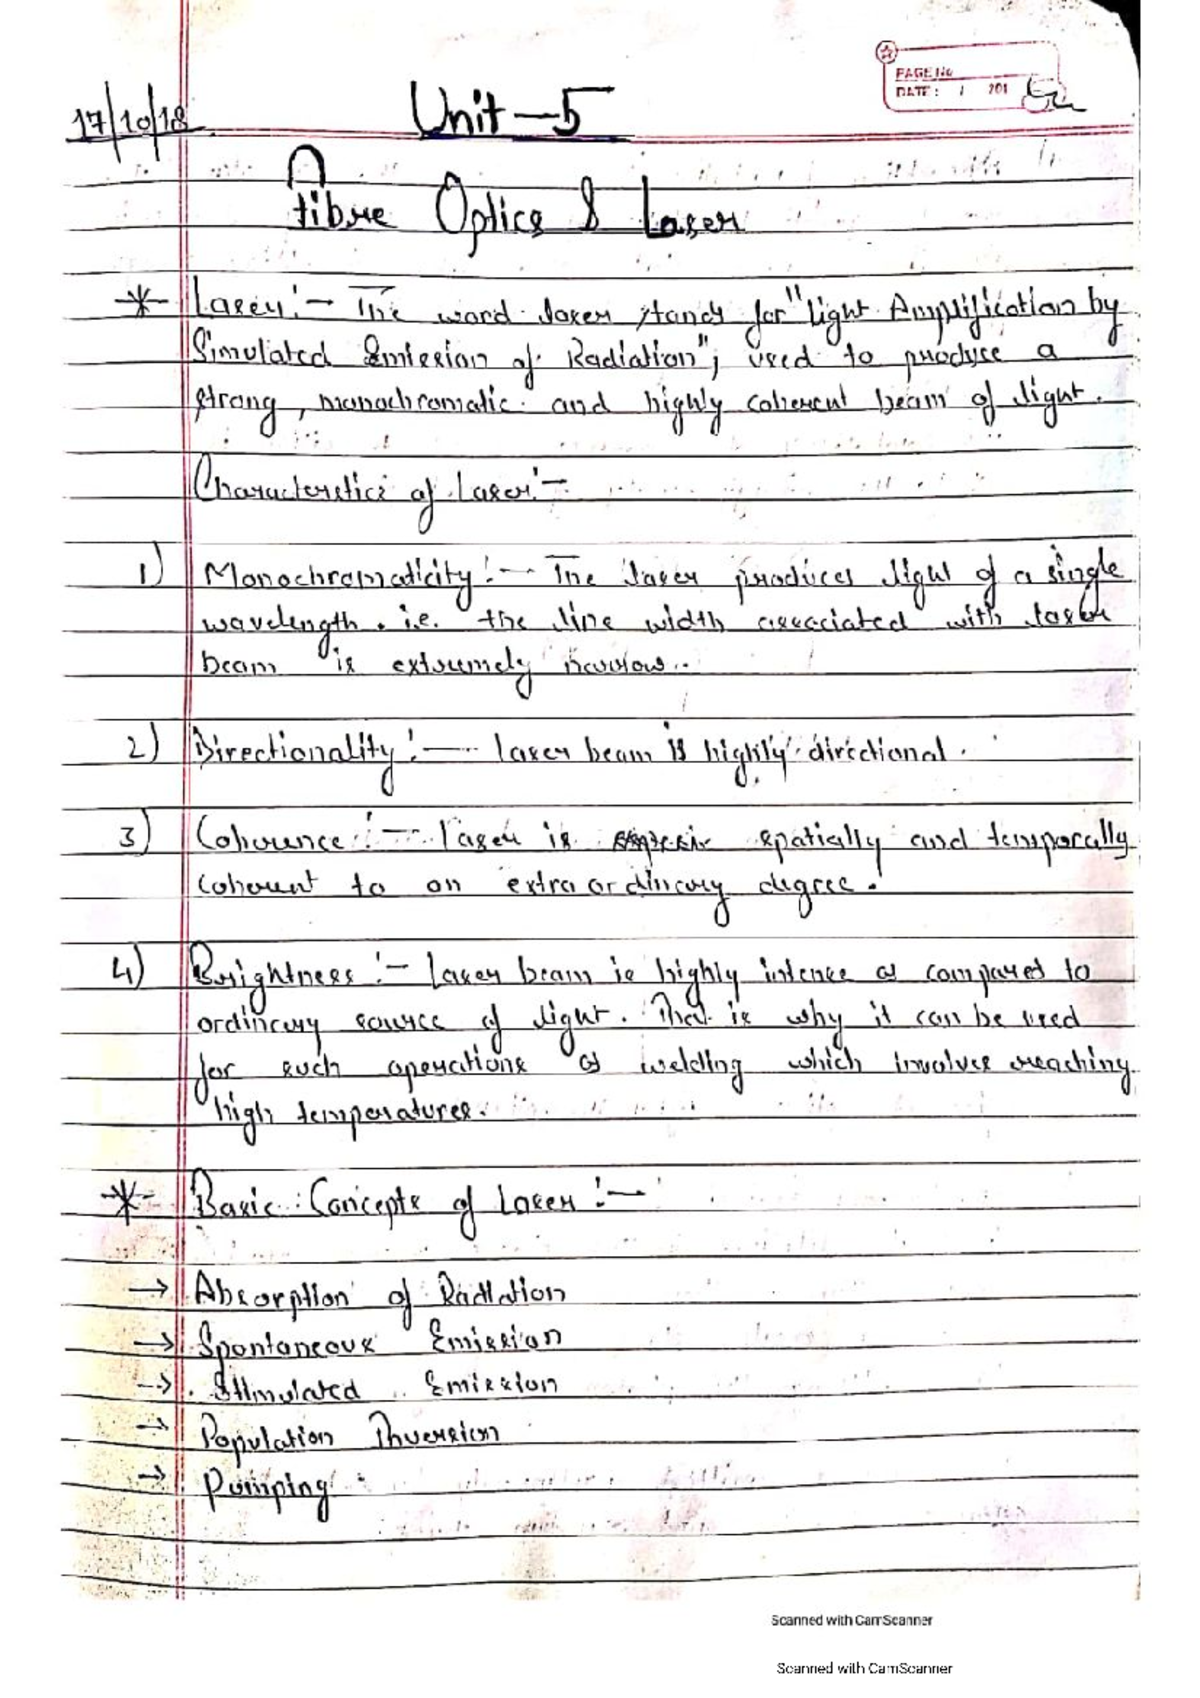 PAGE No
DATE: / 201
17/10/18
Unit-5
Fibre Optics & Laser
* Laser:- The word laser stands for "Light Amplification by
Simulated Emission of Radiation"; used to produce a
strong, monochromatic and highly coherent beam of light.
Characterstics of Laser:-
1) Monochromaticity:- The laser produces light of a single
wavelength. i.e. the line width associated with laser
beam is extremely narrow.
2) Directionality:- laser beam is highly directional.
3) Coherence:- Laser is spatially and temporally
coherent to an extraordinary degree.
4) Brightness:- Laser beam is highly intense as compared to
ordinary source of light. That is why it can be used
for such operations as welding which involves reaching
high temperatures.
* Basic Concepts of Laser:-
→ Absorption of Radiation
→ Spontaneous Emission
→ Stimulated Emission
→ Population Inversion
→ Pumping
Scanned with CamScanner
Scanned with CamScanner